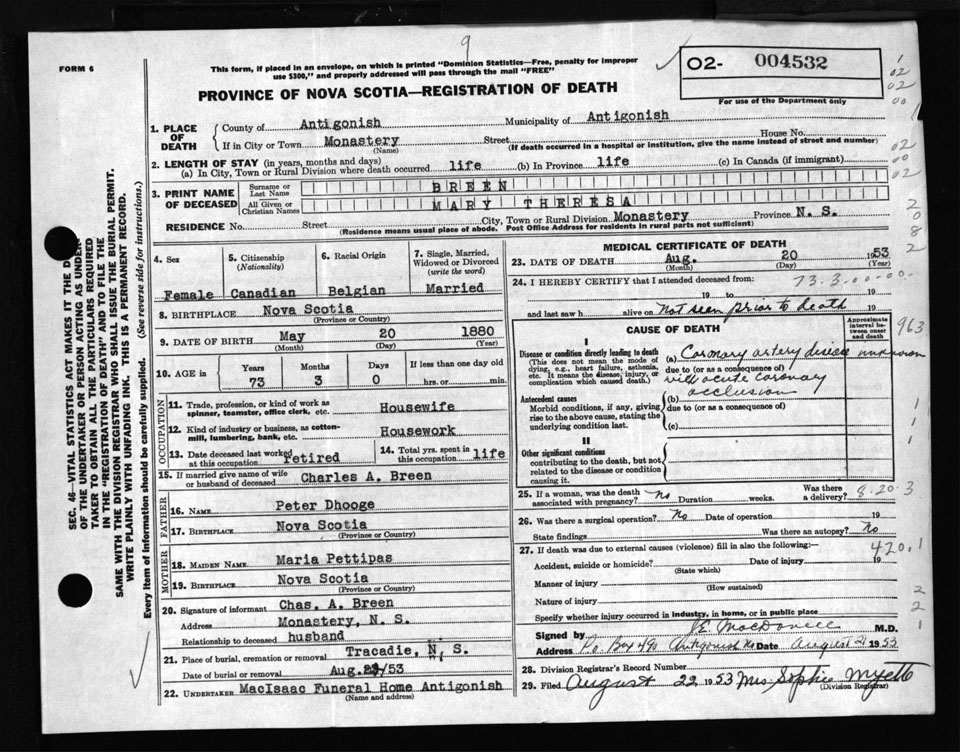 9
FORM 6
This form, if placed in an envelope, on which is printed "Dominion Statistics—Free, penalty for improper
use $300," and properly addressed will pass through the mail "FREE"
O2- 004532
For use of the Department only
PROVINCE OF NOVA SCOTIA—REGISTRATION OF DEATH
1. PLACE OF DEATH
County of Antigonish Municipality of Antigonish
If in City or Town Monastery Street House No.
(Name) (If death occurred in a hospital or institution, give the name instead of street and number)
2. LENGTH OF STAY (in years, months and days)
(a) In City, Town or Rural Division where death occurred life (b) In Province life (c) In Canada (if immigrant)
3. PRINT NAME OF DECEASED
Surname or Last Name BREEN
All Given or Christian Names MARY THERESA
RESIDENCE No. Street City, Town or Rural Division Monastery Province N. S.
(Residence means usual place of abode. Post Office Address for residents in rural parts not sufficient)
4. Sex
Female
5. Citizenship
(Nationality)
Canadian
6. Racial Origin
Belgian
7. Single, Married,
Widowed or Divorced
(write the word)
Married
8. BIRTHPLACE Nova Scotia
(Province or Country)
9. DATE OF BIRTH May 20 1880
(Month) (Day) (Year)
10. AGE in
Years Months Days If less than one day
73 3 0 hrs. or min.
OCCUPATION
11. Trade, profession, or kind of work as
spinner, teamster, office clerk, etc. Housewife
12. Kind of industry or business, as cotton-
mill, lumbering, bank, etc. Housework
13. Date deceased last worked
at this occupation retired
14. Total yrs. spent in
this occupation life
15. If married give name of wife
or husband of deceased Charles A. Breen
FATHER
16. NAME Peter Dhooge
17. BIRTHPLACE Nova Scotia
(Province or Country)
MOTHER
18. MAIDEN NAME Maria Pettipas
19. BIRTHPLACE Nova Scotia
(Province or Country)
20. Signature of informant Chas. A. Breen
Address Monastery, N. S.
Relationship to deceased husband
21. Place of burial, cremation or removal Tracadie, N. S.
Date of burial or removal /53
22. UNDERTAKER MacIsaac Funeral Home Antigonish
(Name and address)
MEDICAL CERTIFICATE OF DEATH
23. DATE OF DEATH Aug. 20 1953
(Month) (Day) (Year)
24. I HEREBY CERTIFY that I attended deceased from: 73.3.00-00-
19 to 19
and last saw h alive on not seen prior to death 19
CAUSE OF DEATH
Approximate
interval be-
tween onset
and death
I
Disease or condition directly leading to death
(This does not mean the mode of
dying, e.g., heart failure, asthenia,
etc. It means the disease, injury, or
complication which caused death.)
(a) Coronary artery disease unknown
due to (or as a consequence of)
with acute coronary
occlusion
Antecedent causes
Morbid conditions, if any, giving
rise to the above cause, stating the
underlying condition last.
(b)
due to (or as a consequence of)
(c)
II
Other significant conditions
contributing to the death, but not
related to the disease or condition
causing it.
25. If a woman, was the death
associated with pregnancy? no Duration weeks. Was there
a delivery? 8.20.3
26. Was there a surgical operation? No Date of operation 19
State findings Was there an autopsy? No
27. If death was due to external causes (violence) fill in also the following:—
420.1
Accident, suicide or homicide? Date of injury 19
(State which)
Manner of injury
(How sustained)
Nature of injury
Specify whether injury occurred in industry, in home, or in public place
Signed by J.E. MacDonell M.D.
Address P.o. Box 490 Antigonish NS Date August 21 1953
28. Division Registrar's Record Number
29. Filed August 22 1953 Mrs. Sophie Myette
(Division Registrar)
SEC. 46—VITAL STATISTICS ACT MAKES IT THE
OF THE UNDERTAKER OR PERSON ACTING AS UNDER-
TAKER TO OBTAIN ALL THE PARTICULARS REQUIRED
IN THE "REGISTRATION OF DEATH" AND TO FILE THE
SAME WITH THE DIVISION REGISTRAR WHO SHALL ISSUE THE BURIAL PERMIT.
WRITE PLAINLY WITH UNFADING INK. THIS IS A PERMANENT RECORD.
Every item of information should be carefully supplied. (See reverse side for instructions.)
1
02
02
00
02
00
02
2
0
8
2
963
1
1
1
2
2
1